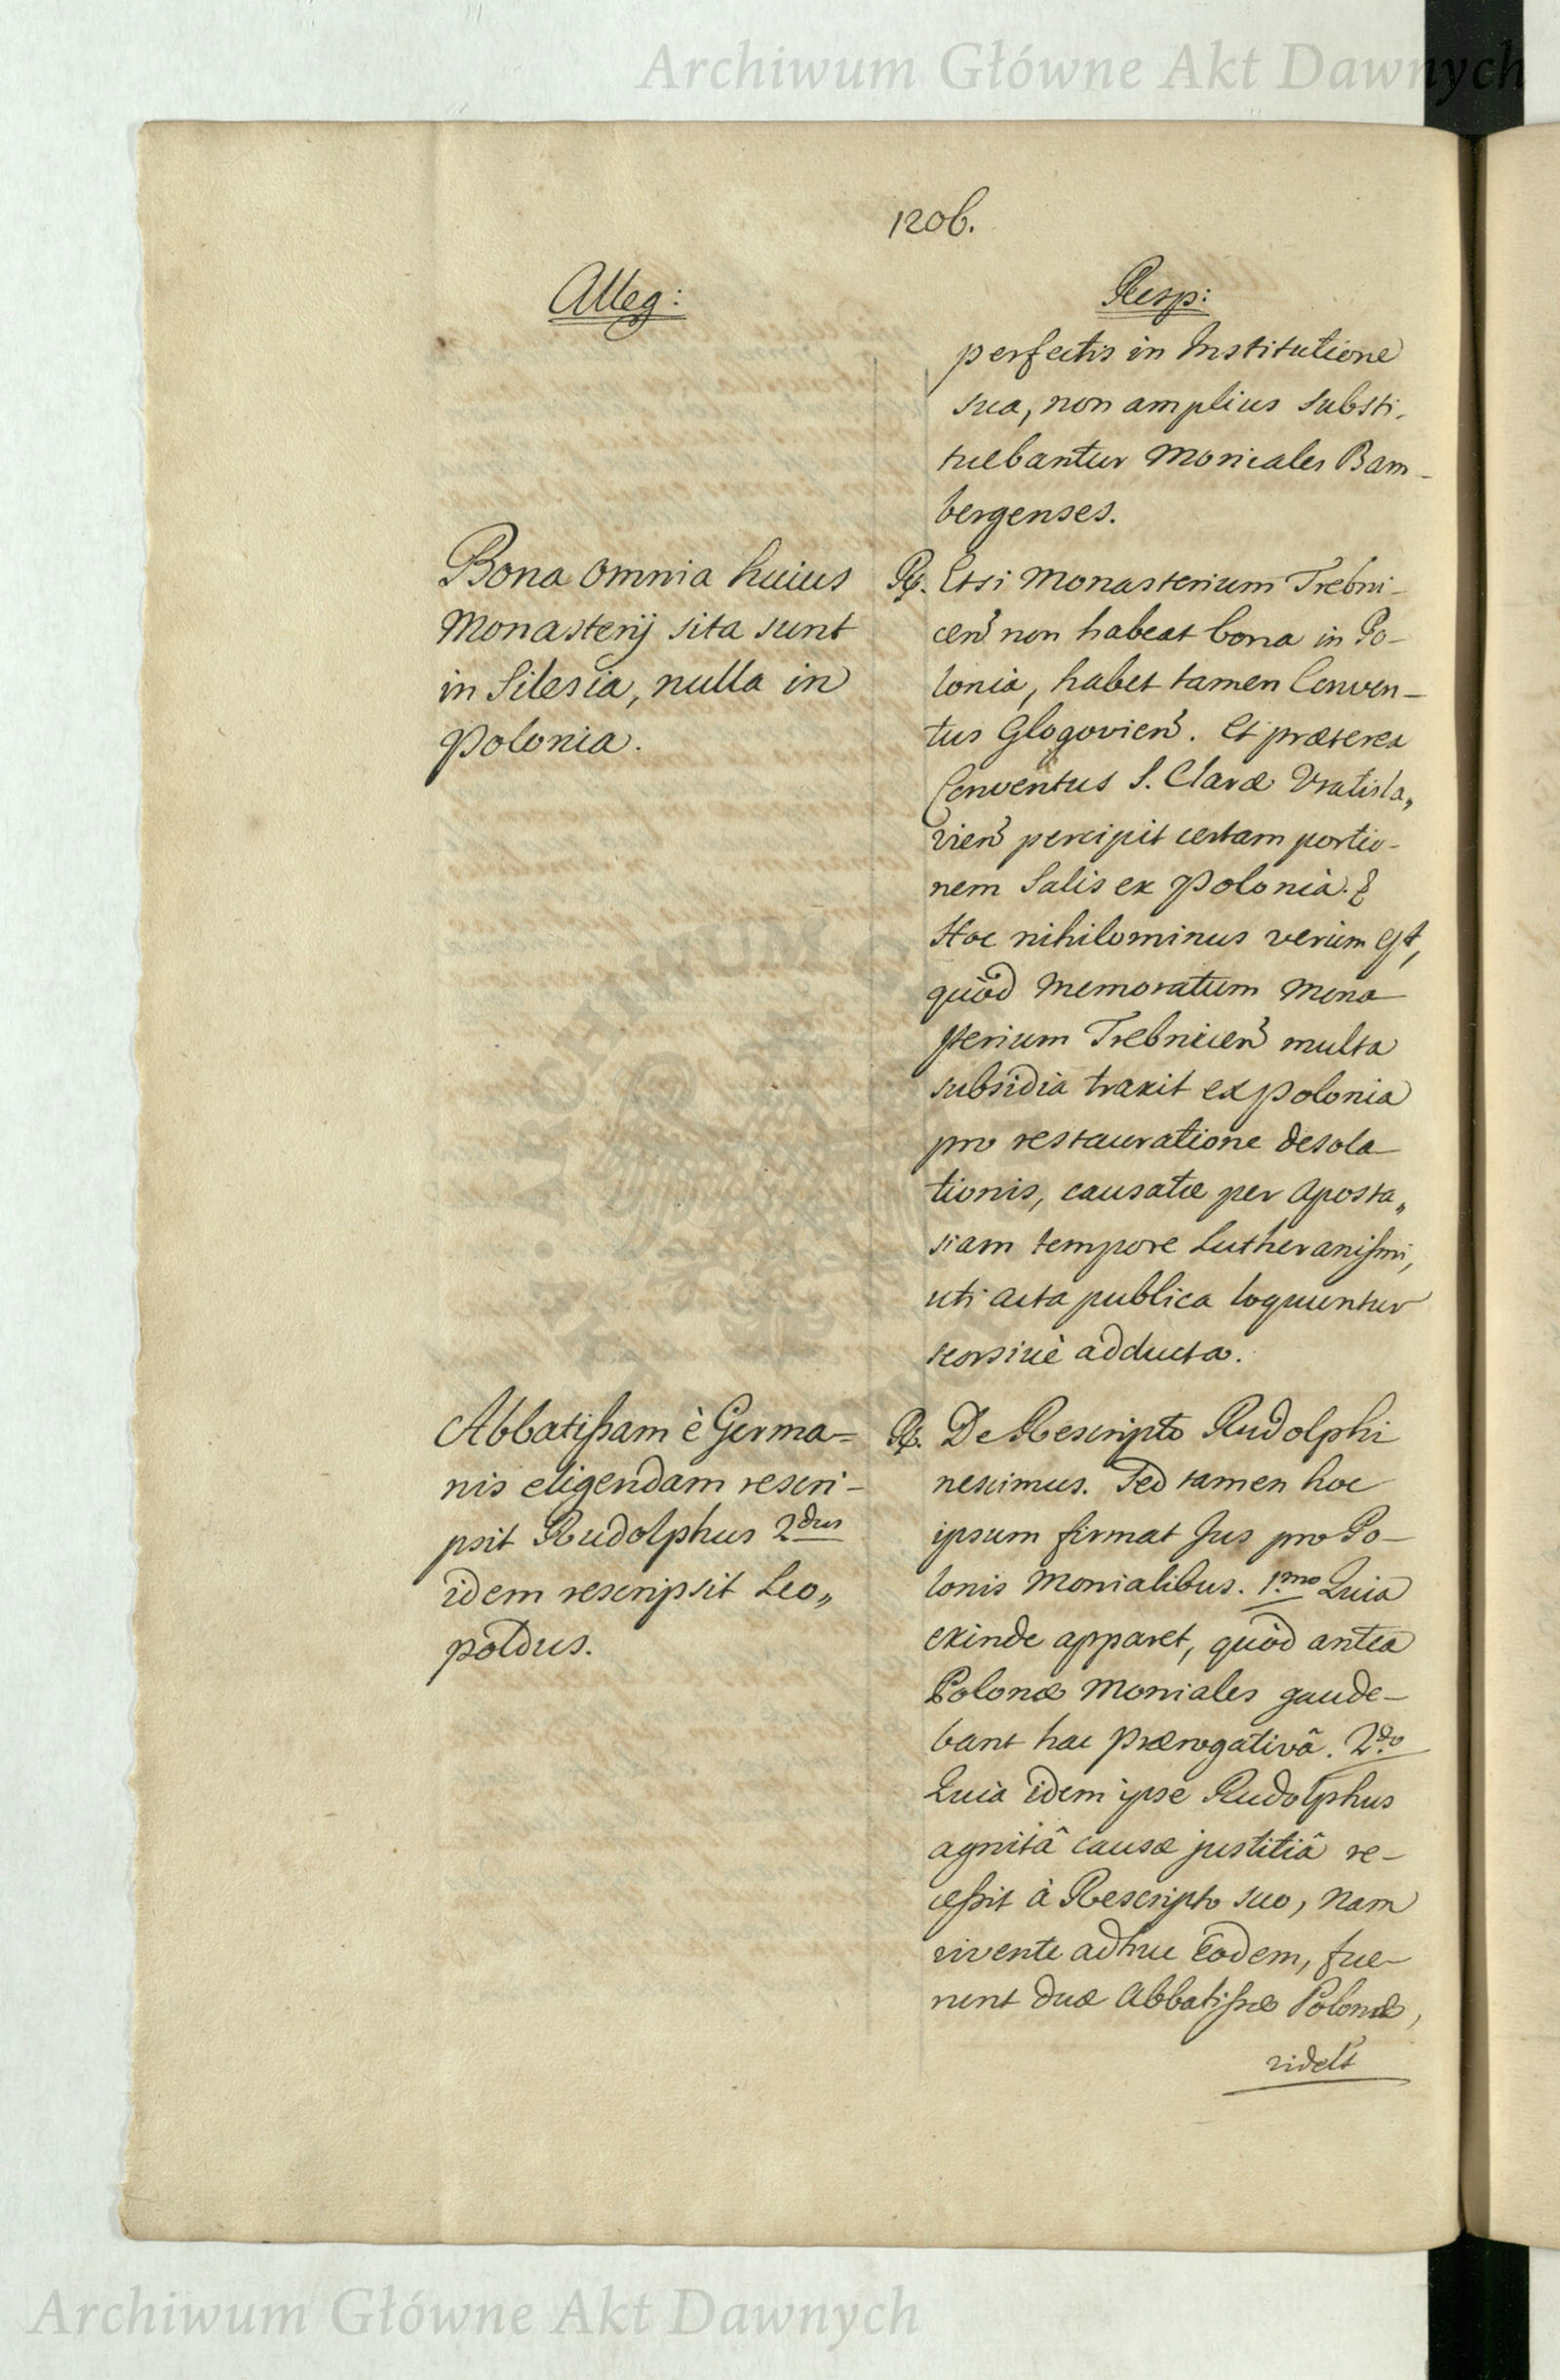 Archiwum Główne Akt Dawnych
1206.
Alleg:
Resp:
perfectis in Institutione
sua, non amplius substi-
tuebantur Moniales Bam-
bergenses.
Bona omnia huius
Monasterij sita sunt
in Silesia, nulla in
Polonia.
Rp. Etsi Monasterium Trebni-
cen̄ non habeat bona in Po-
lonia, habet tamen Conven-
tus Glogovien̄. Et præterea
Conventus S. Claræ Vratisla„
vien̄ percipit certam portio-
nem Salis ex Polonia.
Hoc nihilominus verum est,
quòd memoratum Mona
sterium Trebnicen̄ multa
subsidia traxit ex Polonia
pro restauratione desola-
tionis, causatæ per Aposta„
siam tempore Lutheranismi,
uti acta publica loquuntur
seorsivè adducta.
Abbatißam è Germa=
nis eligendam rescri-
psit Rudolphus 2dus
idem rescripsit Leo„
poldus.
Rp. De Rescripto Rudolphi
nescimus. Sed tamen hoc
ipsum firmat Jus pro Po-
lonis Monialibus. 1mo Quia
exinde apparet, quòd antea
Polonæ Moniales gaude-
bant hac Prærogativâ. 2do
Quia idem ipse Rudolphus
agnitâ causæ justitiâ re-
ceßit à Rescripto suo, nam
vivente adhuc Eodem, fue-
runt duæ Abbatißæ Polonæ,
videlt
Archiwum Główne Akt Dawnych